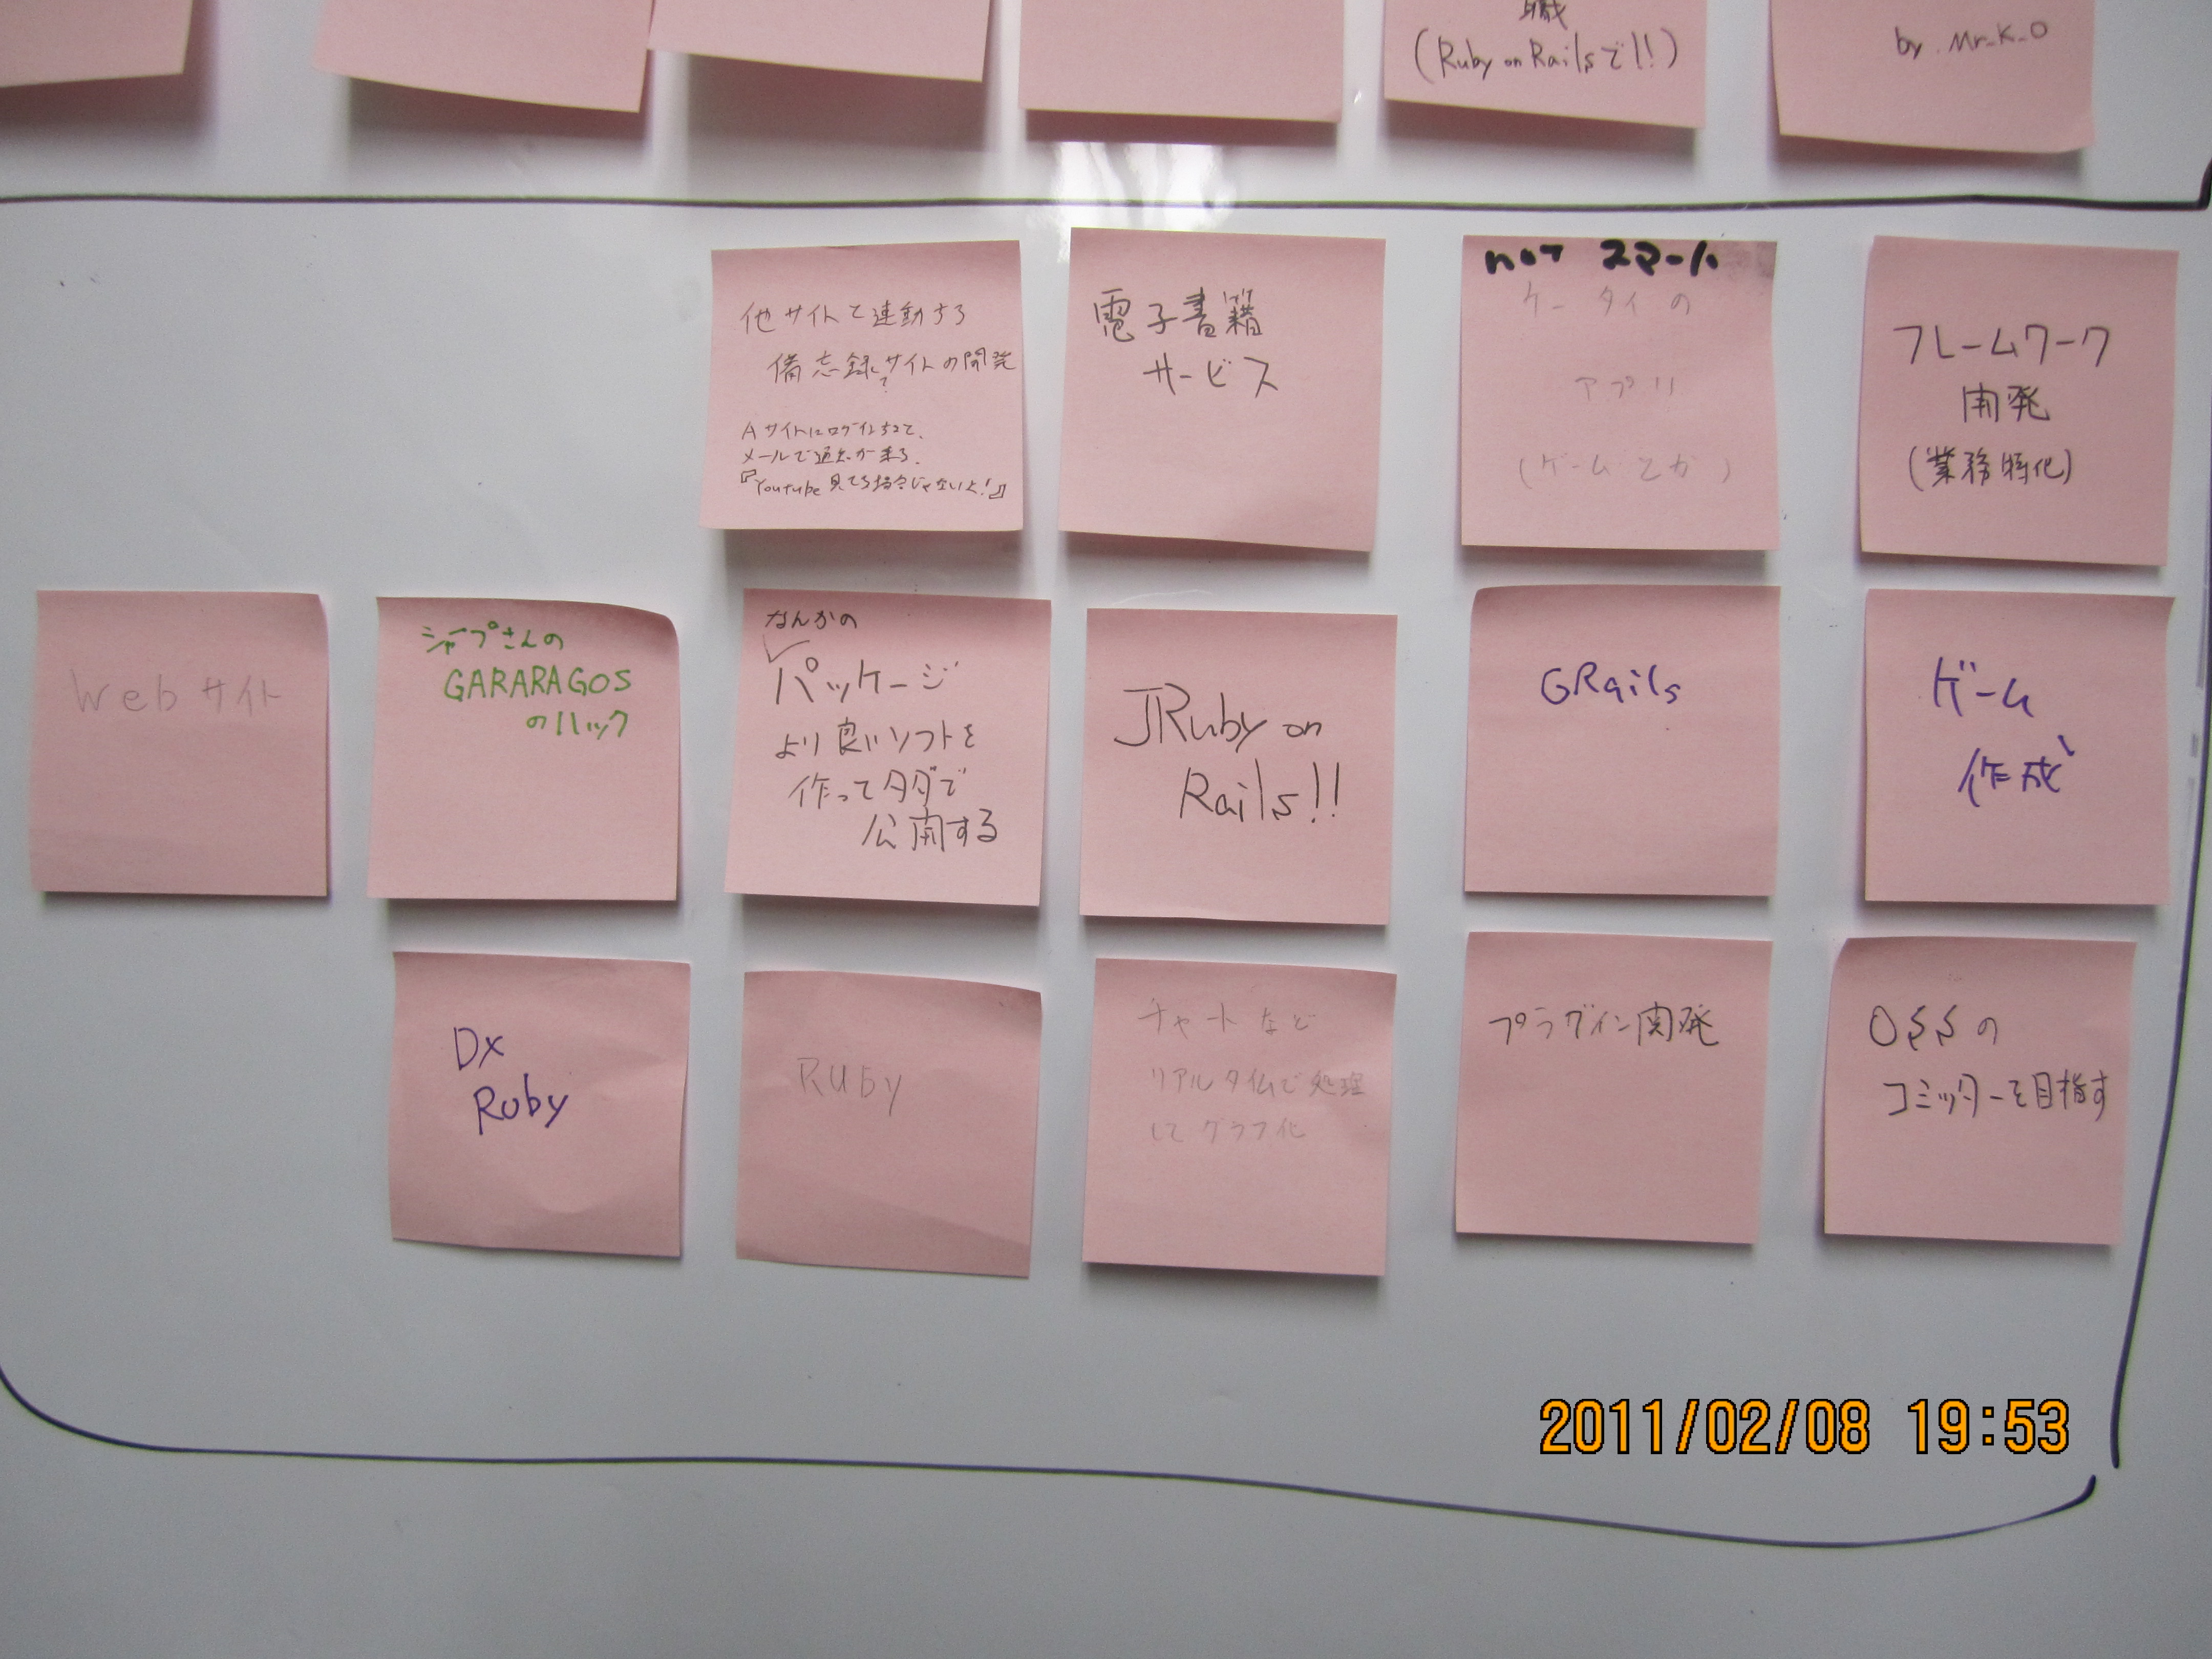 職
(Ruby on Railsで!!)
by Mr_K_O
他サイトと連動する
備忘録サイトの開発
?
Aサイトにログインすると、
メールで通知が来る。
『Youtube 見てる場合じゃないよ!』
電子書籍
サービス
not スマート
ケータイの
アプリ
(ゲームとか)
フレームワーク
開発
(業務特化)
Webサイト
シャープさんの
GARARAGOS
のハック
なんかの
パッケージ
より良いソフトを
作ってタダで
公開する
JRuby on
Rails!!
GRails
ゲーム
作成
DX
Ruby
Ruby
チャートなど
リアルタイムで処理
してグラフ化
プラグイン開発
OSSの
コミッターを目指す
2011/02/08 19:53